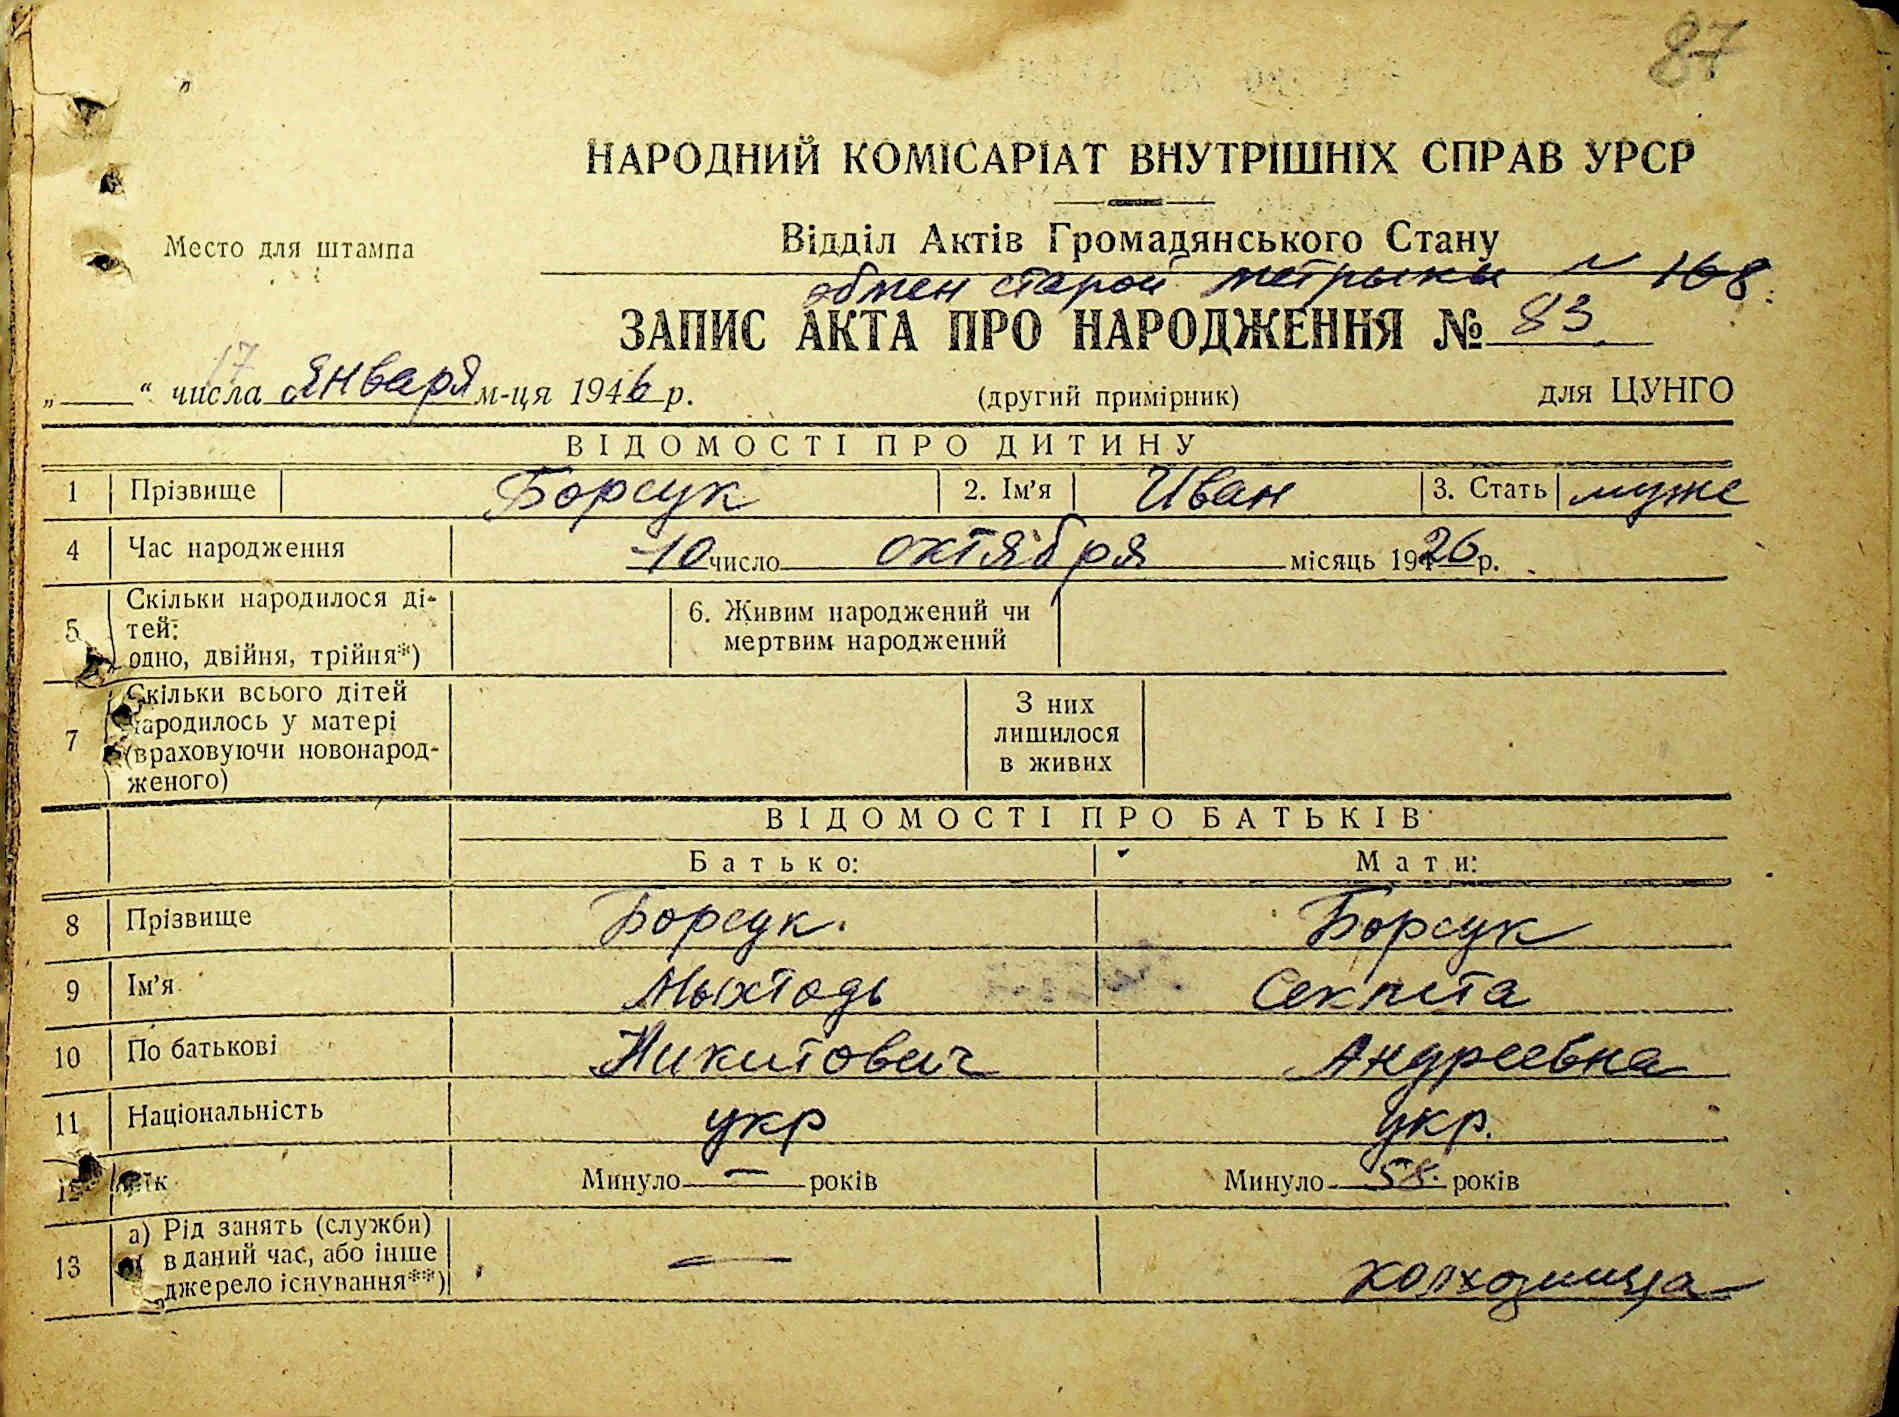 87
НАРОДНИЙ КОМІСАРІАТ ВНУТРІШНІХ СПРАВ УРСР
Место для штампа
Відділ Актів Громадянського Стану
обмен старой метрыки № 168
ЗАПИС АКТА ПРО НАРОДЖЕННЯ № 83.
„ 17 “ числа января м-ця 1946 р. (другий примірник) для ЦУНГО
ВІДОМОСТІ ПРО ДИТИНУ
1 Прізвище Борсук 2. Ім’я Иван 3. Стать муже
4 Час народження 10 число октября місяць 1926 р.
5 Скільки народилося ді-
тей:
одно, двійня, трійня*)
6. Живим народжений чи
мертвим народжений
7 Скільки всього дітей
народилось у матері
(враховуючи новонарод-
женого)
З них
лишилося
в живих
ВІДОМОСТІ ПРО БАТЬКІВ
Батько: Мати:
8 Прізвище Борсук. Борсук
9 Ім’я
10 По батькові Никитович Андреевна
11 Національність укр укр.
12 Вік Минуло — років Минуло 58. років
13 а) Рід занять (служби)
в даний час, або інше
джерело існування**)
— колхозница